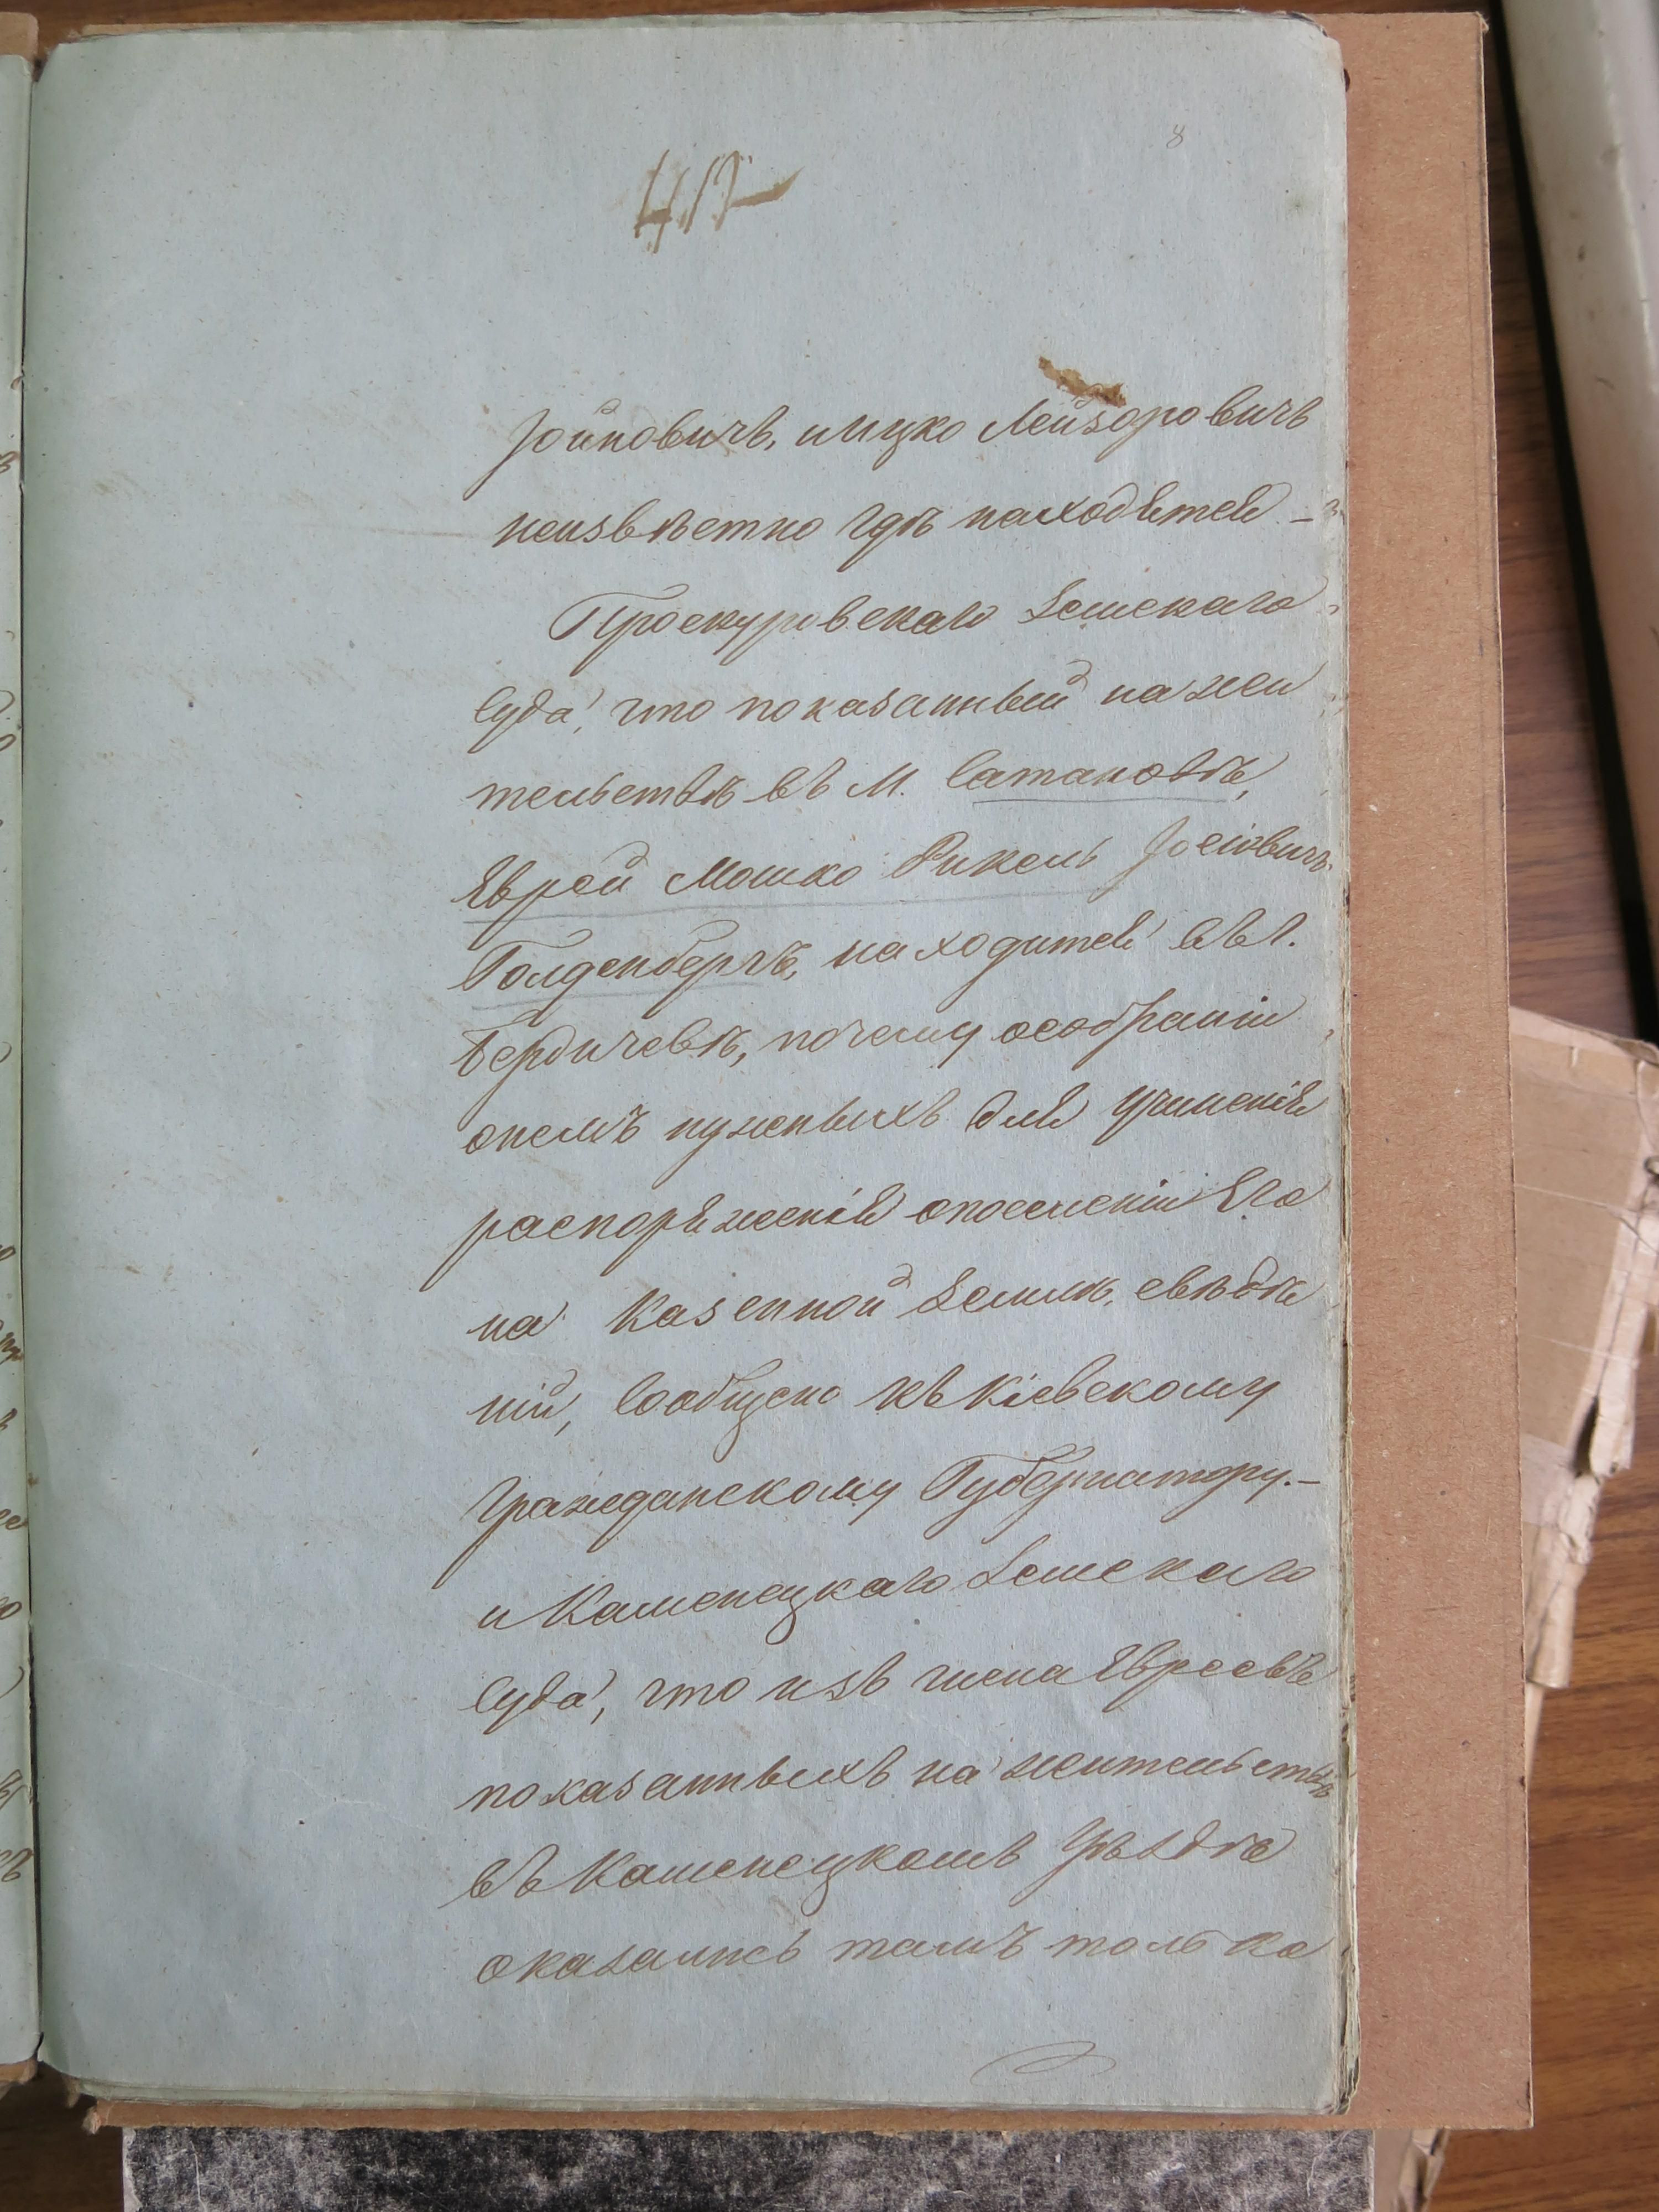 8
412
Іойновичъ, и Ицко Лейзоровичъ
неизвѣстно гдѣ находятся –
Проскуровскаго Земскаго
Суда, что показанный на жи
тельствѣ въ М. Сатановѣ,
Еврей Мошко Финкель Іосіовичъ
Голденбергъ, находится въ г.
Бердичевѣ, почему о собраніи
о немъ нужныхъ для учиненія
распоряженія о поселеніи Его
на Казенной Землѣ, свѣдѣ
ній, Сообщено къ Кіевскому
Гражданскому Губернатору. –
и Каменецкаго Земскаго
Суда, что изъ числа Евреевъ
показанныхъ на жительствѣ
въ Каменецкомъ Уѣздѣ
оказались тамъ только